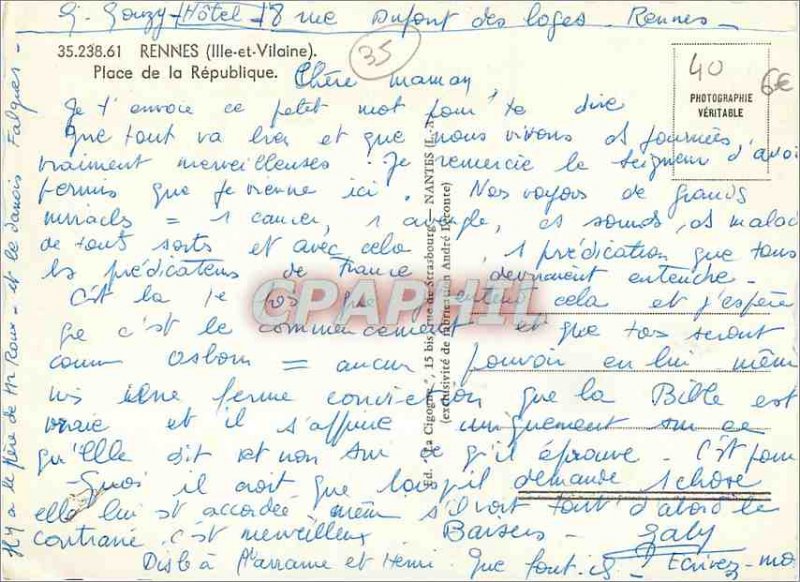 G. Gouzy - Hôtel - 18 rue Dupont des Loges - Rennes -
35.238.61 RENNES (Ille-et-Vilaine).
Place de la République.
35
40
6€
PHOTOGRAPHIE
VÉRITABLE
Chère maman,
Je t'envoie ce petit mot pour te dire
que tout va bien et que nous vivons des journées
vraiment merveilleuses. Je remercie le Seigneur d'avoir
permis que je vienne ici. Nous voyons de grands
miracles = 1 cancer, 1 aveugle, des sourds, des malad
de tous sorts et avec cela, 1 prédication que tous
les prédicateurs de France devraient entendre -
C'est la 1e fois que j'entend cela et j'espère
que c'est le commencement et que tos seront
comme Osborn = aucun pouvoir en lui même
mis une ferme conviction que la Bible est
vraie et il s'appuie uniquement sur ce
qu'Elle dit et non sur ce qu'il éprouve - C'est pour
Quoi il croit que lorsqu'il demande 1 chose
elle lui est accordée même s'il voit tout d'abord le
contraire. c'est merveilleux Baisers - Gaby
Dis le à Marraine et Henri. Que font-ils - Ecrivez-mo
Il y a le frère de Mr Roux - et le danois Falguer -
Ed. "La Cigogne", 15 bis, rue de Strasbourg - NANTES (L.
(exclusivité de fabrication André Leconte)
CPAPHIL